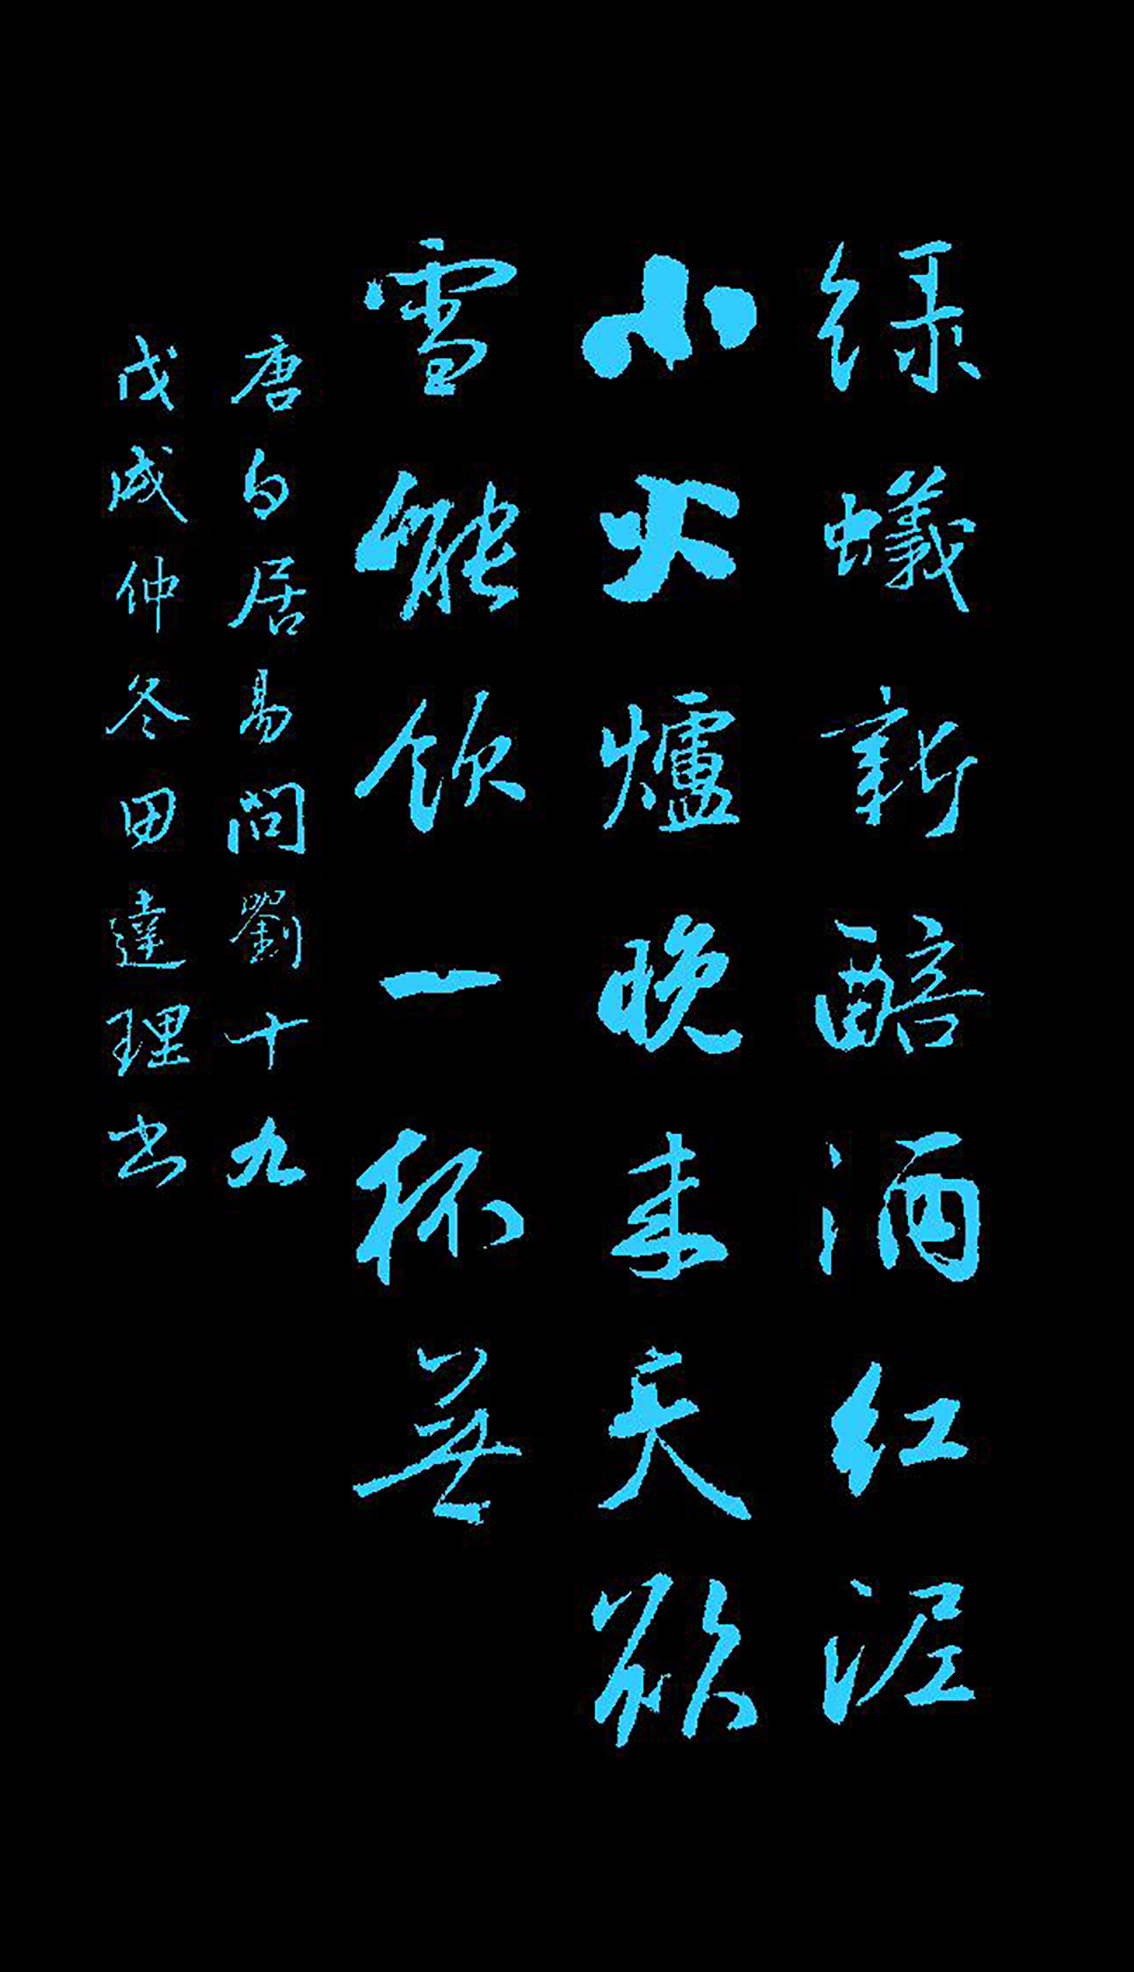 绿蟻新醅酒红泥
小火爐晚来天欲
雪能饮一杯無
唐白居易問劉十九
戊戌仲冬田達理书